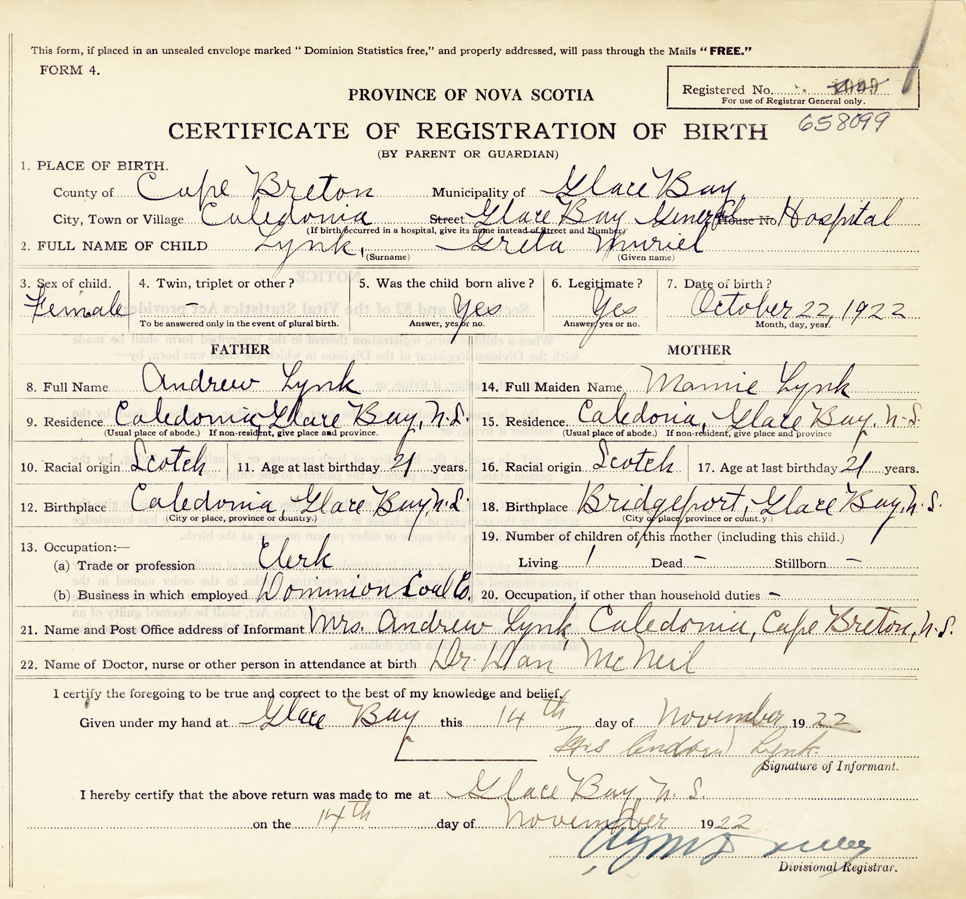 This form, if placed in an unsealed envelope marked "Dominion Statistics free," and properly addressed, will pass through the Mails "FREE."
FORM 4.
Registered No.
For use of Registrar General only.
658099
PROVINCE OF NOVA SCOTIA
CERTIFICATE OF REGISTRATION OF BIRTH
(BY PARENT OR GUARDIAN)
1. PLACE OF BIRTH.
County of Cape Breton Municipality of Glace Bay
City, Town or Village Caledonia Street Glace Bay General House No Hospital
(If birth occurred in a hospital, give its name instead of Street and Number)
2. FULL NAME OF CHILD Lynk, Greta Muriel
(Surname) (Given name)
3. Sex of child. 4. Twin, triplet or other? 5. Was the child born alive? 6. Legitimate? 7. Date of birth?
Female - Yes Yes October 22, 1922
To be answered only in the event of plural birth. Answer, yes or no. Answer, yes or no. Month, day, year.
FATHER MOTHER
8. Full Name Andrew Lynk 14. Full Maiden Name Mamie Lynk
9. Residence Caledonia, Glace Bay, N.S. 15. Residence Caledonia, Glace Bay, N.S.
(Usual place of abode.) If non-resident, give place and province. (Usual place of abode.) If non-resident, give place and province
10. Racial origin Scotch 11. Age at last birthday 21 years. 16. Racial origin Scotch 17. Age at last birthday 21 years.
12. Birthplace Caledonia, Glace Bay N.S. 18. Birthplace Bridgeport, Glace Bay, N.S.
(City or place, province or country.) (City or place, province or country.)
13. Occupation:— 19. Number of children of this mother (including this child.)
(a) Trade or profession Clerk Living 1 Dead - Stillborn -
(b) Business in which employed Dominion Coal Co. 20. Occupation, if other than household duties -
21. Name and Post Office address of Informant Mrs. Andrew Lynk Caledonia, Cape Breton, N.S.
22. Name of Doctor, nurse or other person in attendance at birth Dr. Dan McNeil
I certify the foregoing to be true and correct to the best of my knowledge and belief.
Given under my hand at Glace Bay this 14th day of November 1922
Mrs Andrew Lynk
Signature of Informant.
I hereby certify that the above return was made to me at Glace Bay, N.S.
on the 14th day of November 1922
Divisional Registrar.